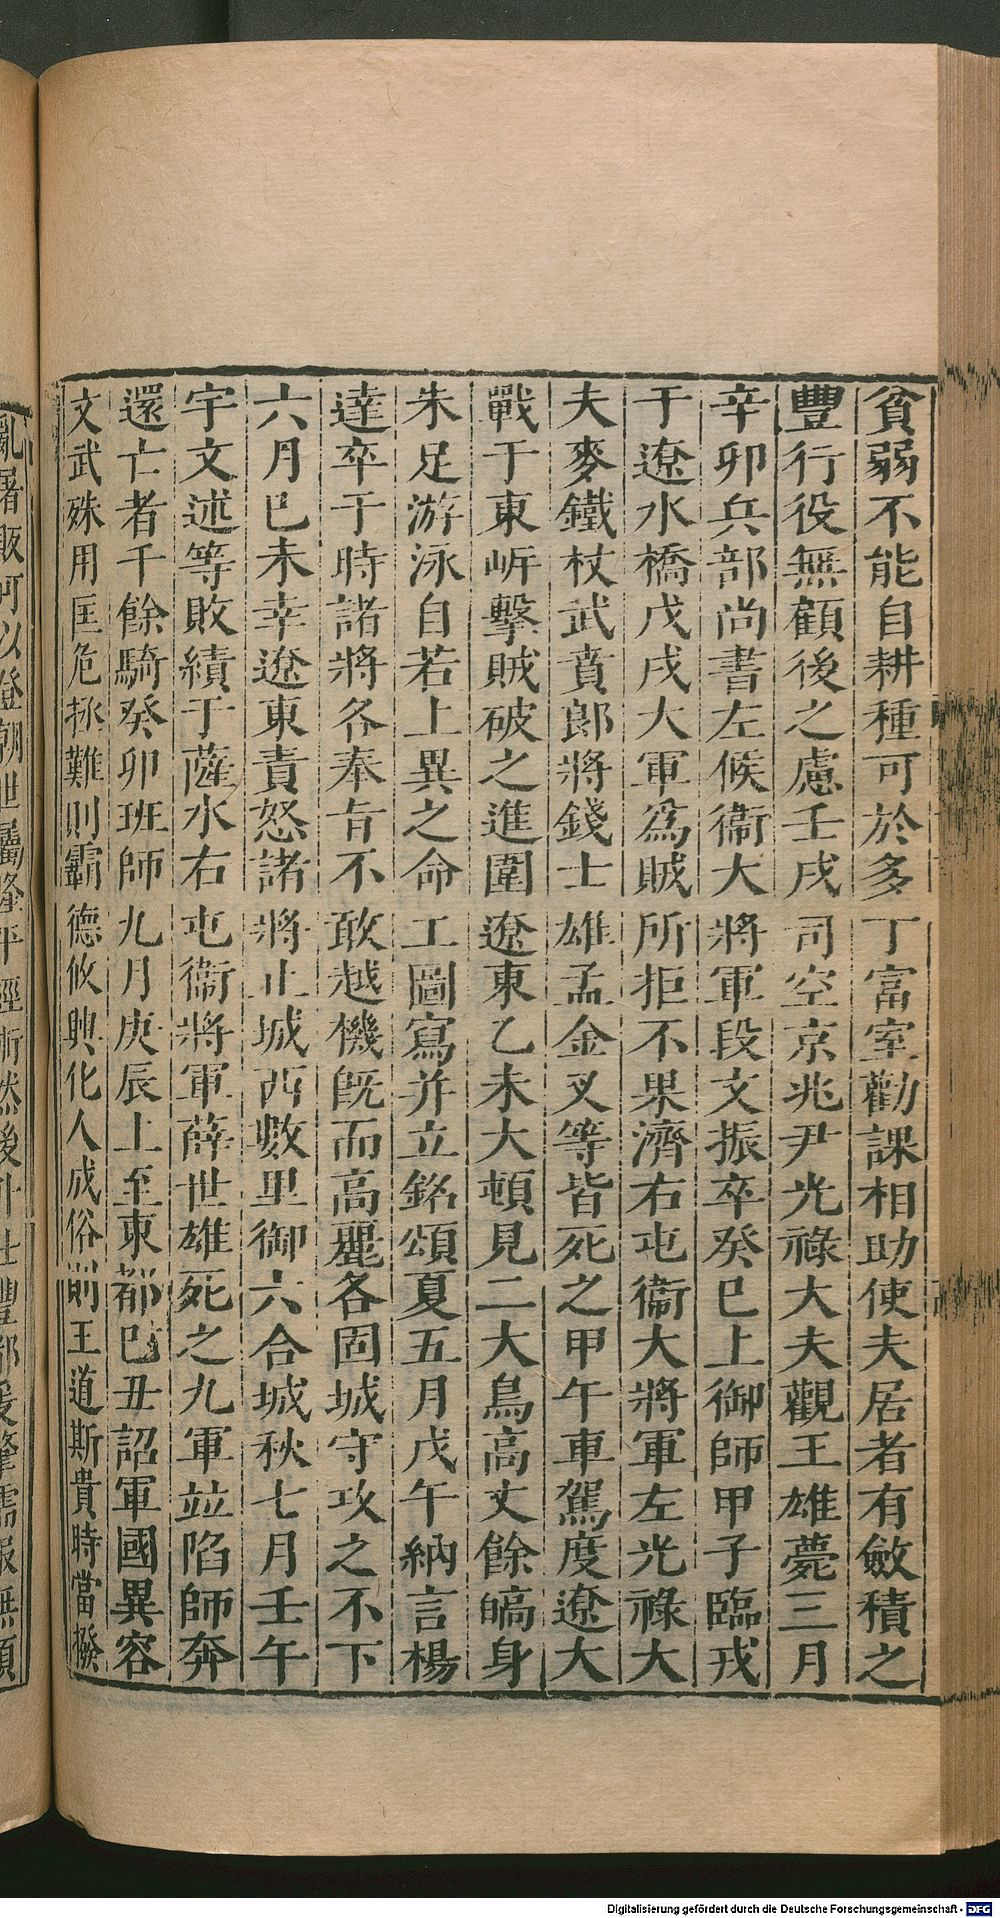 貧弱不能自耕種可於多丁富室勸課相助使夫居者有斂積之
豐行役無顧後之慮壬戌司空京兆尹光祿大夫觀王雄薨三月
辛卯兵部尚書左候衞大將軍段文振卒癸巳上御師甲子臨戎
于遼水橋戊戌大軍爲賊所拒不果濟右屯衞大將軍左光祿大
夫麥鐵杖武賁郎將錢士雄孟金叉等皆死之甲午車駕度遼大
戰于東岍擊賊破之進圍遼東乙未大頓見二大鳥高丈餘皜身
朱足游泳自若上異之命工圖寫并立銘頌夏五月戊午納言楊
達卒于時諸將各奉旨不敢越機旣而高麗各固城守攻之不下
六月巳未幸遼東責怒諸將止城西數里御六合城秋七月壬午
宇文述等敗績于薩水右屯衞將軍薛世雄死之九軍竝陷師奔
還亡者千餘騎癸卯班師九月庚辰上至東都巳丑詔軍國異容
文武殊用匡危拯難則霸德攸興化人成俗則王道斯貴時當撥
Digitalisierung gefördert durch die Deutsche Forschungsgemeinschaft - DFG